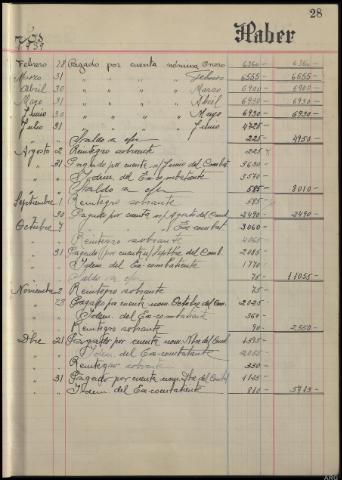 28
1939
Haber
Febrero 28 Pagado por cuenta nómina Enero 6360 - 6360 -
Marzo 31 " " " " Febrero 6555 - 6555 -
Abril 30 " " " " Marzo 6900 - 6900 -
Mayo 31 " " " " Abril 6930 - 6930 -
Junio 30 " " " " Mayo 6930 - 6930 -
Julio 31 " " " " Junio 4725 -
" " Saldo a 225 - 4950 -
Agosto 2 Reintegro sobrante 225
" 31 Pagado por cuenta n/ Junio del Combat
" " Idem del Ex-combatiente 3570 -
" " Saldo a 585 - 8010 -
Septiembre 1 Reintegro sobrante 585 -
" 30 Pagado por cuenta n/ Agosto del Comb. 2490 - 2490 -
Octubre 7 " " " " Ex combat 3060 -
" " Reintegro sobrante
" 31 Pagado por cuenta n/ Septbre del Comb. 2085 -
" " Idem del Ex-combatiente 1770 -
" " Saldo a 75 - 11055 -
Noviembre 2 Reintegro sobrante 75 -
" 23 Pagado por cuenta nom. Octubre del Com. 2025 -
" " Idem del Ex-combatiente 360 -
" " Reintegro sobrante 90 - 2550 -
Dbre 21 Pagado por cuenta nom. Nbre del Comb 1595 -
" " Idem del Ex-combatiente
" " Reintegro sobrante 330 -
" 31 Pagado por cuenta nom. Dbre del Combat 1125 -
" " Idem del Ex-combatiente 810 -